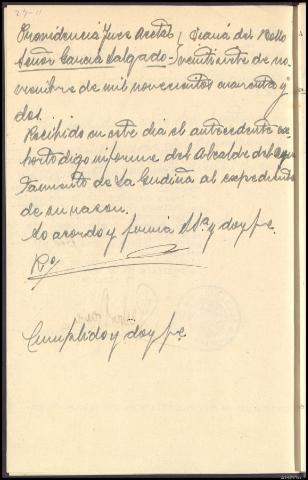 27-11
Providencia Juez Acctal } Viana del Bollo
Señor García Salgado.- } veintisiete de no-
viembre de mil novecientos cuarenta y
dos.
Recibido en este dia el antecedente ex-
horto digo informe del Alcalde del Ayun
tamiento de La Gudiña al expediente
de su razon.
Lo acordo y firma S.Sª y doy fe.
Cumplido y doy fe.